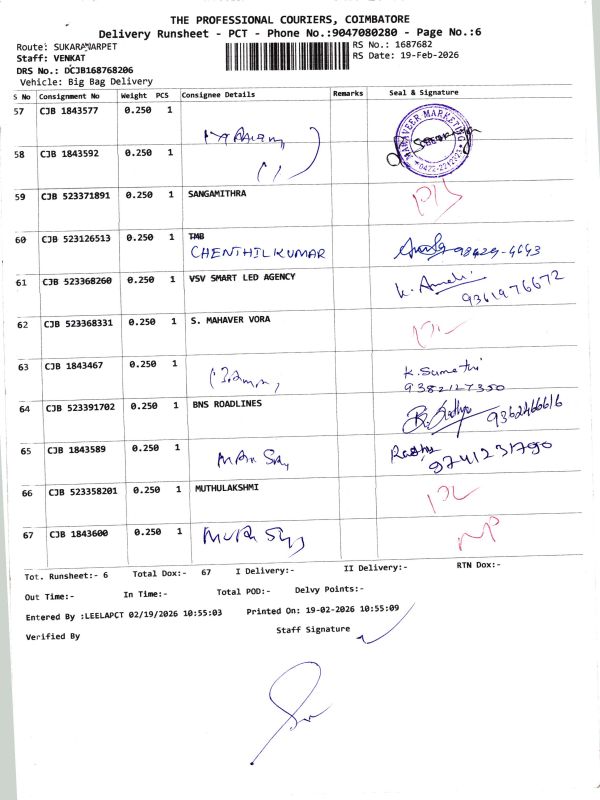 THE PROFESSIONAL COURIERS, COIMBATORE
Delivery Runsheet - PCT - Phone No.:9047080280 - Page No.:6
Route: SUKARAWARPET
RS No.: 1687682
Staff: VENKAT
RS Date: 19-Feb-2026
DRS No.: DCJB168768206
Vehicle: Big Bag Delivery
S No Consignment No Weight PCS Consignee Details Remarks Seal & Signature
57 CJB 1843577 0.250 1
MAHAVEER MARKETING
58 CJB 1843592 0.250 1
59 CJB 523371891 0.250 1 SANGAMITHRA
60 CJB 523126513 0.250 1 TMB
CHENTHILKUMAR 98429-4643
61 CJB 523368260 0.250 1 VSV SMART LED AGENCY
9361976672
62 CJB 523368331 0.250 1 S. MAHAVER VORA
63 CJB 1843467 0.250 1 K. Sumathi
9382127350
64 CJB 523391702 0.250 1 BNS ROADLINES 9362466616
65 CJB 1843589 0.250 1 9741231790
66 CJB 523358201 0.250 1 MUTHULAKSHMI
67 CJB 1843600 0.250 1
Tot. Runsheet:- 6 Total Dox:- 67 I Delivery:- II Delivery:- RTN Dox:-
Out Time:- In Time:- Total POD:- Delvy Points:-
Entered By :LEELAPCT 02/19/2026 10:55:03 Printed On: 19-02-2026 10:55:09
Verified By Staff Signature